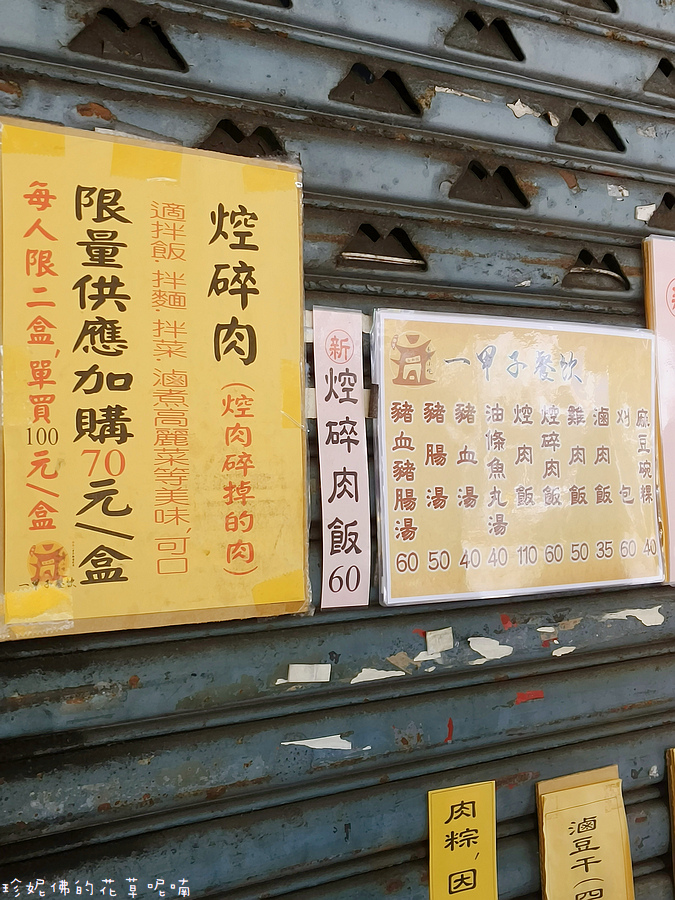 焢碎肉(焢肉碎掉的肉)
適拌飯.拌麵.拌菜.滷煮高麗菜等美味,可口
限量供應加購70元/盒
每人限二盒,單買100元/盒
一甲子餐飲
新焢碎肉飯60
一甲子餐飲
麻豆碗粿 40
刈包 60
滷肉飯 35
雞肉飯 50
焢碎肉飯 60
焢肉飯 110
油條魚丸湯 40
豬血湯 40
豬腸湯 50
豬血豬腸湯 60
新
肉粽,因
滷豆干(四
珍妮佛的花草呢喃